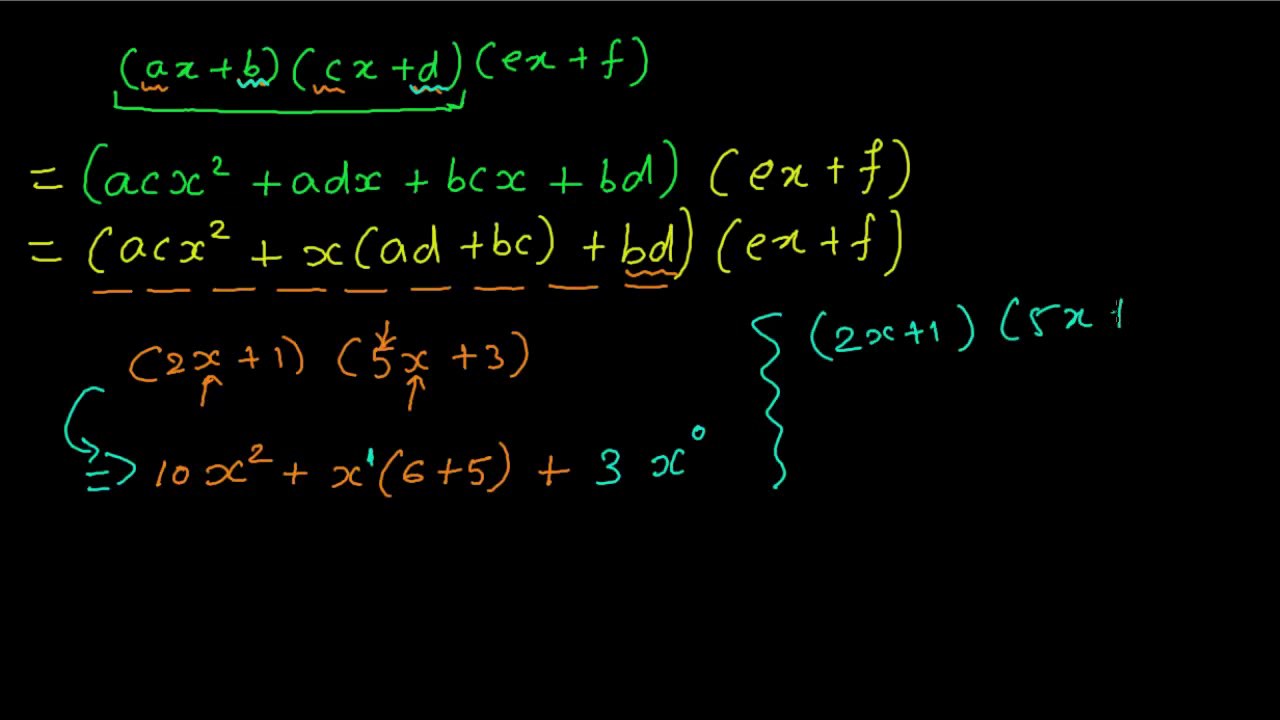 (ax+b)(cx+d)(ex+f)
= (acx² + adx + bcx + bd) (ex+f)
= (acx² + x(ad+bc) + bd) (ex+f)
(2x+1) (5x+3)
(2x+1) (5x+
=> 10x² + x¹(6+5) + 3x⁰